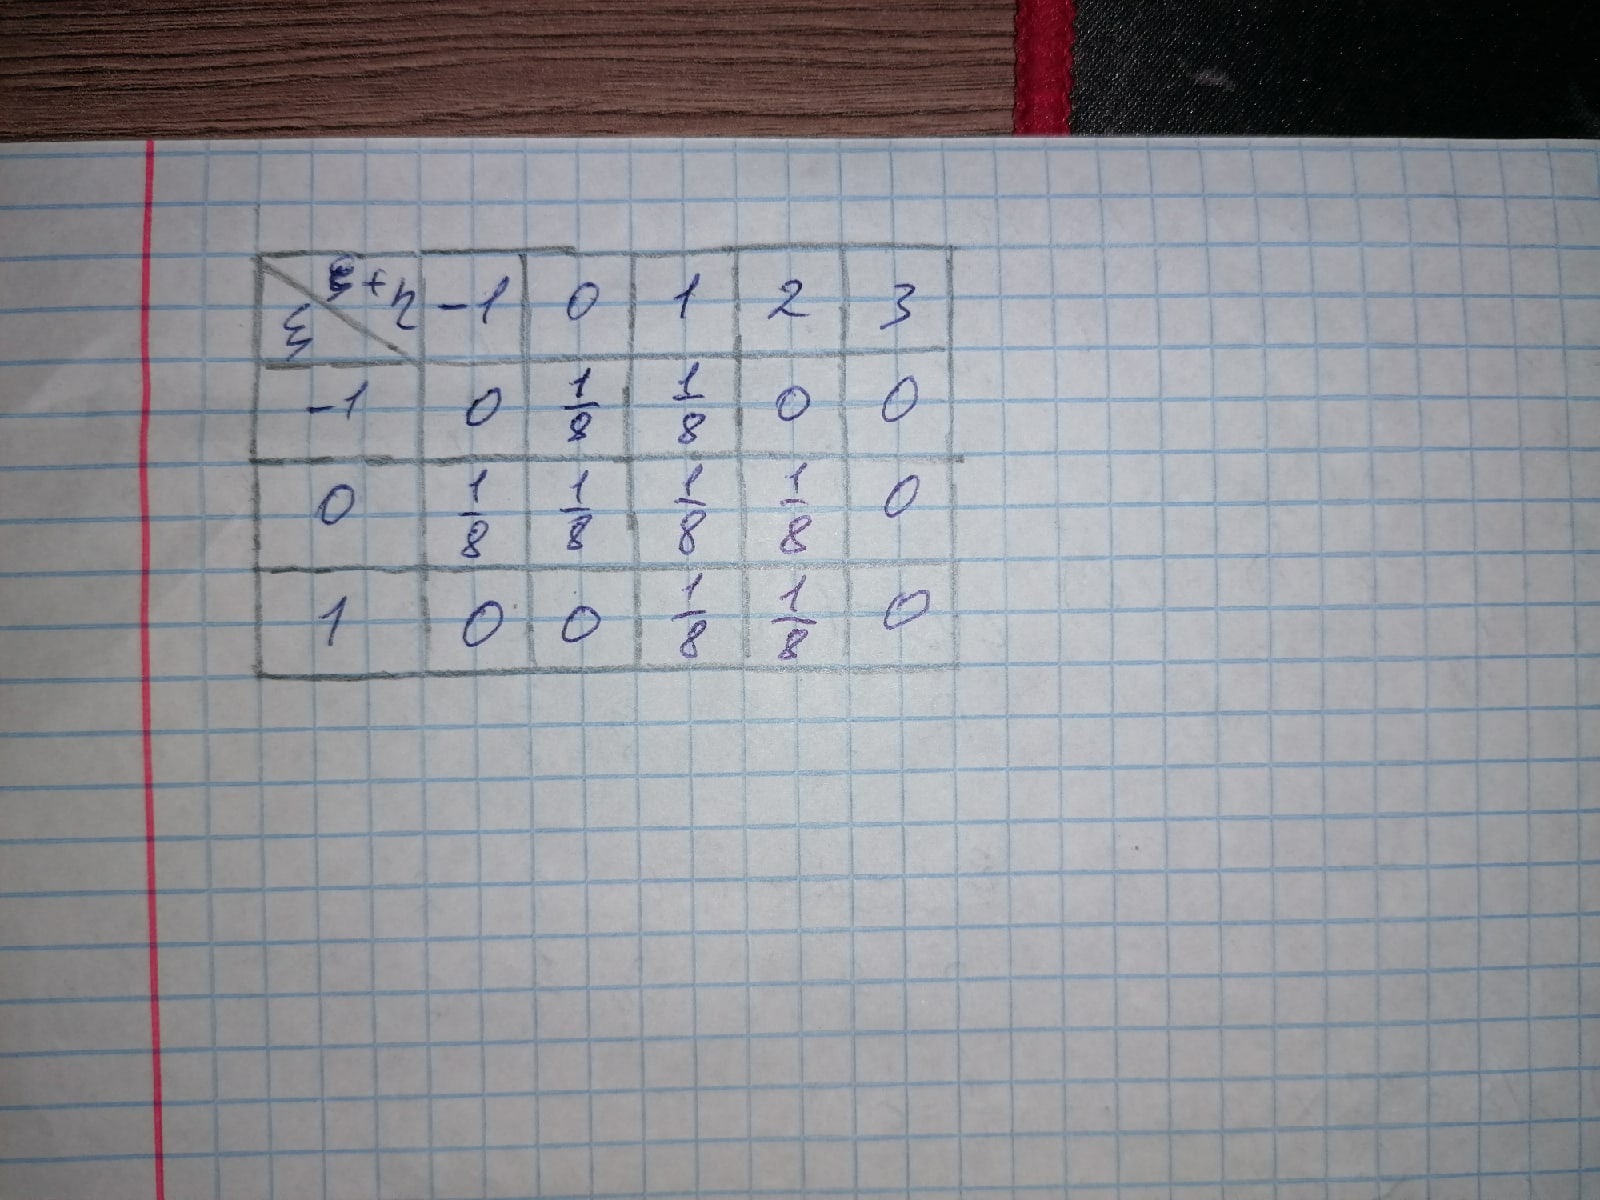 ξ ξ+η -1 0 1 2 3
-1 0 1/8 1/8 0 0
0 1/8 1/8 1/8 1/8 0
1 0 0 1/8 1/8 0